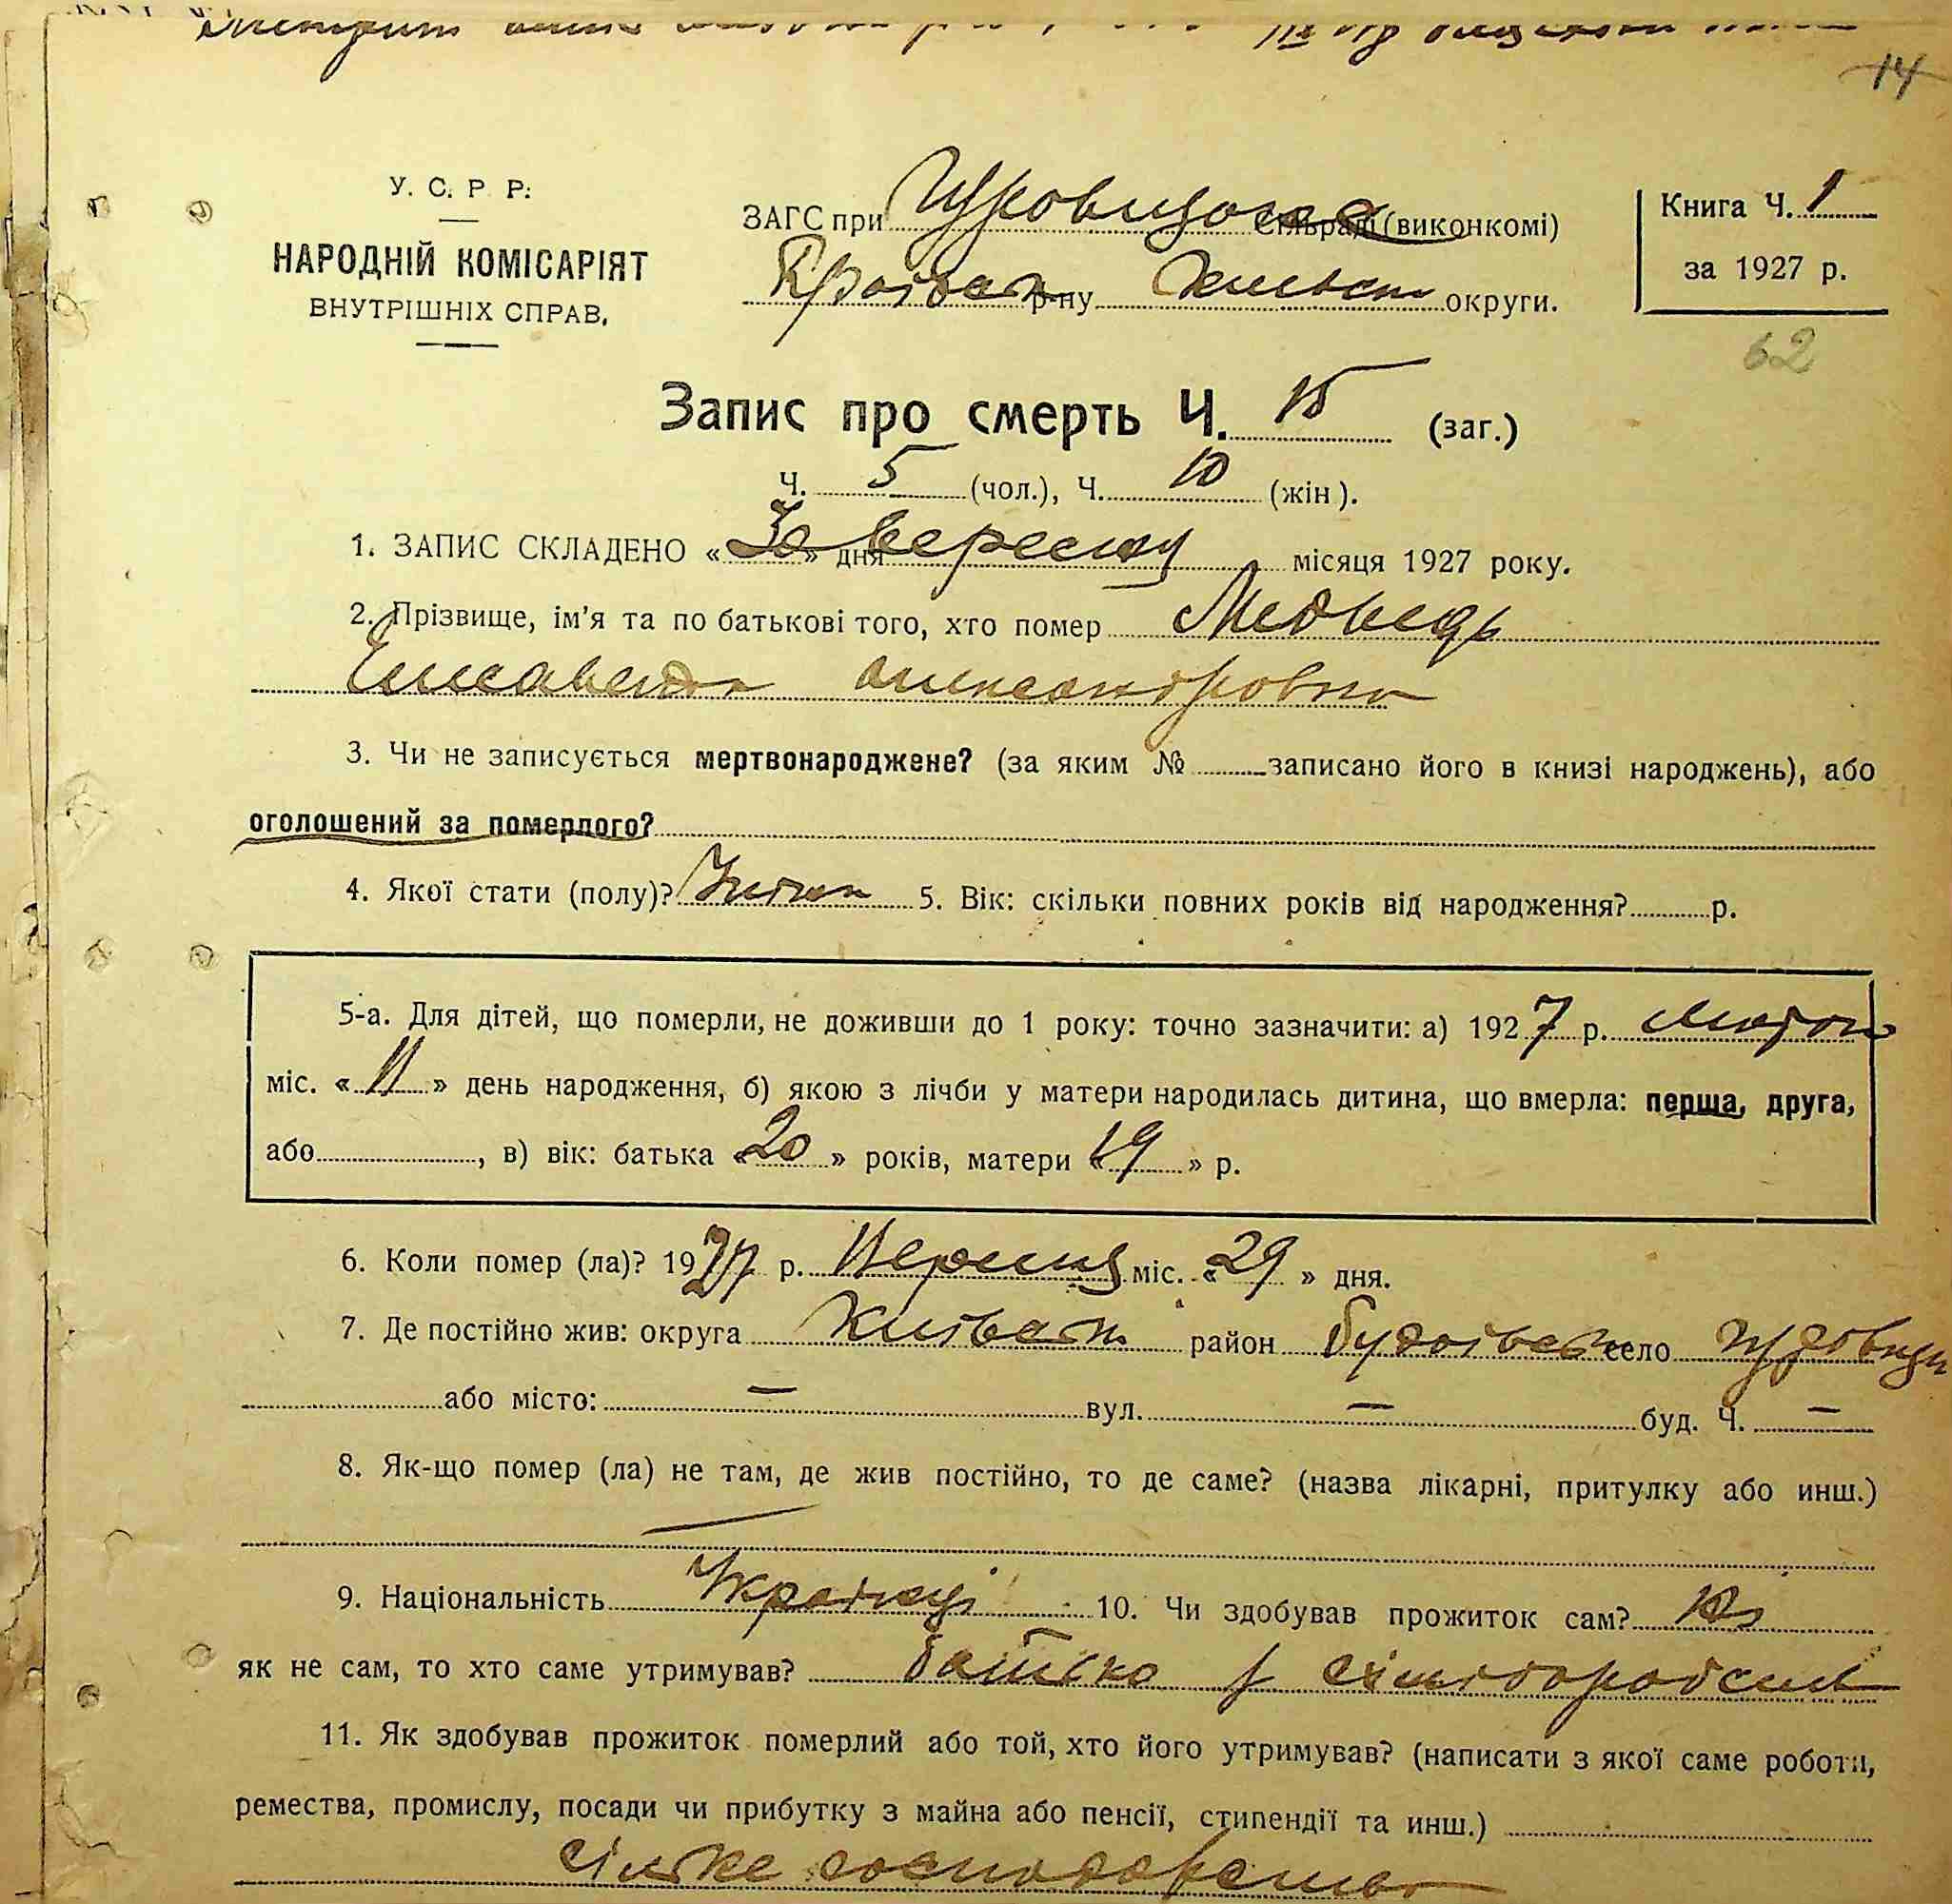 14
У. С. Р. Р.
НАРОДНІЙ КОМІСАРІЯТ
ВНУТРІШНІХ СПРАВ.
ЗАГС при сільраді (виконкомі)
р-ну округи.
Книга Ч. 1
за 1927 р.
62
Запис про смерть Ч. 15 (заг.)
Ч. 5 (чол.), Ч. 10 (жін).
1. ЗАПИС СКЛАДЕНО «30» дня вересня місяця 1927 року.
2. Прізвище, ім'я та по батькові того, хто помер Медведь
Елисавета Александровна
3. Чи не записується мертвонароджене? (за яким № записано його в книзі народжень), або
оголошений за померлого?
4. Якої стати (полу)? 5. Вік: скільки повних років від народження? р.
5-а. Для дітей, що померли, не доживши до 1 року: точно зазначити: а) 1927 р. Лютого
міс. «11» день народження, б) якою з лічби у матери народилась дитина, що вмерла: перша, друга,
або , в) вік: батька «20» років, матери «19» р.
6. Коли помер (ла)? 1927 р. Вересня міс. «29» дня.
7. Де постійно жив: округа Київськ район село
або місто: — вул. — буд. Ч. —
8. Як-що помер (ла) не там, де жив постійно, то де саме? (назва лікарні, притулку або инш.)
—
9. Національність 10. Чи здобував прожиток сам? Ні
як не сам, то хто саме утримував? батько
11. Як здобував прожиток померлий або той, хто його утримував? (написати з якої саме роботи,
ремества, промислу, посади чи прибутку з майна або пенсії, стипендії та инш.)
сільске господарство